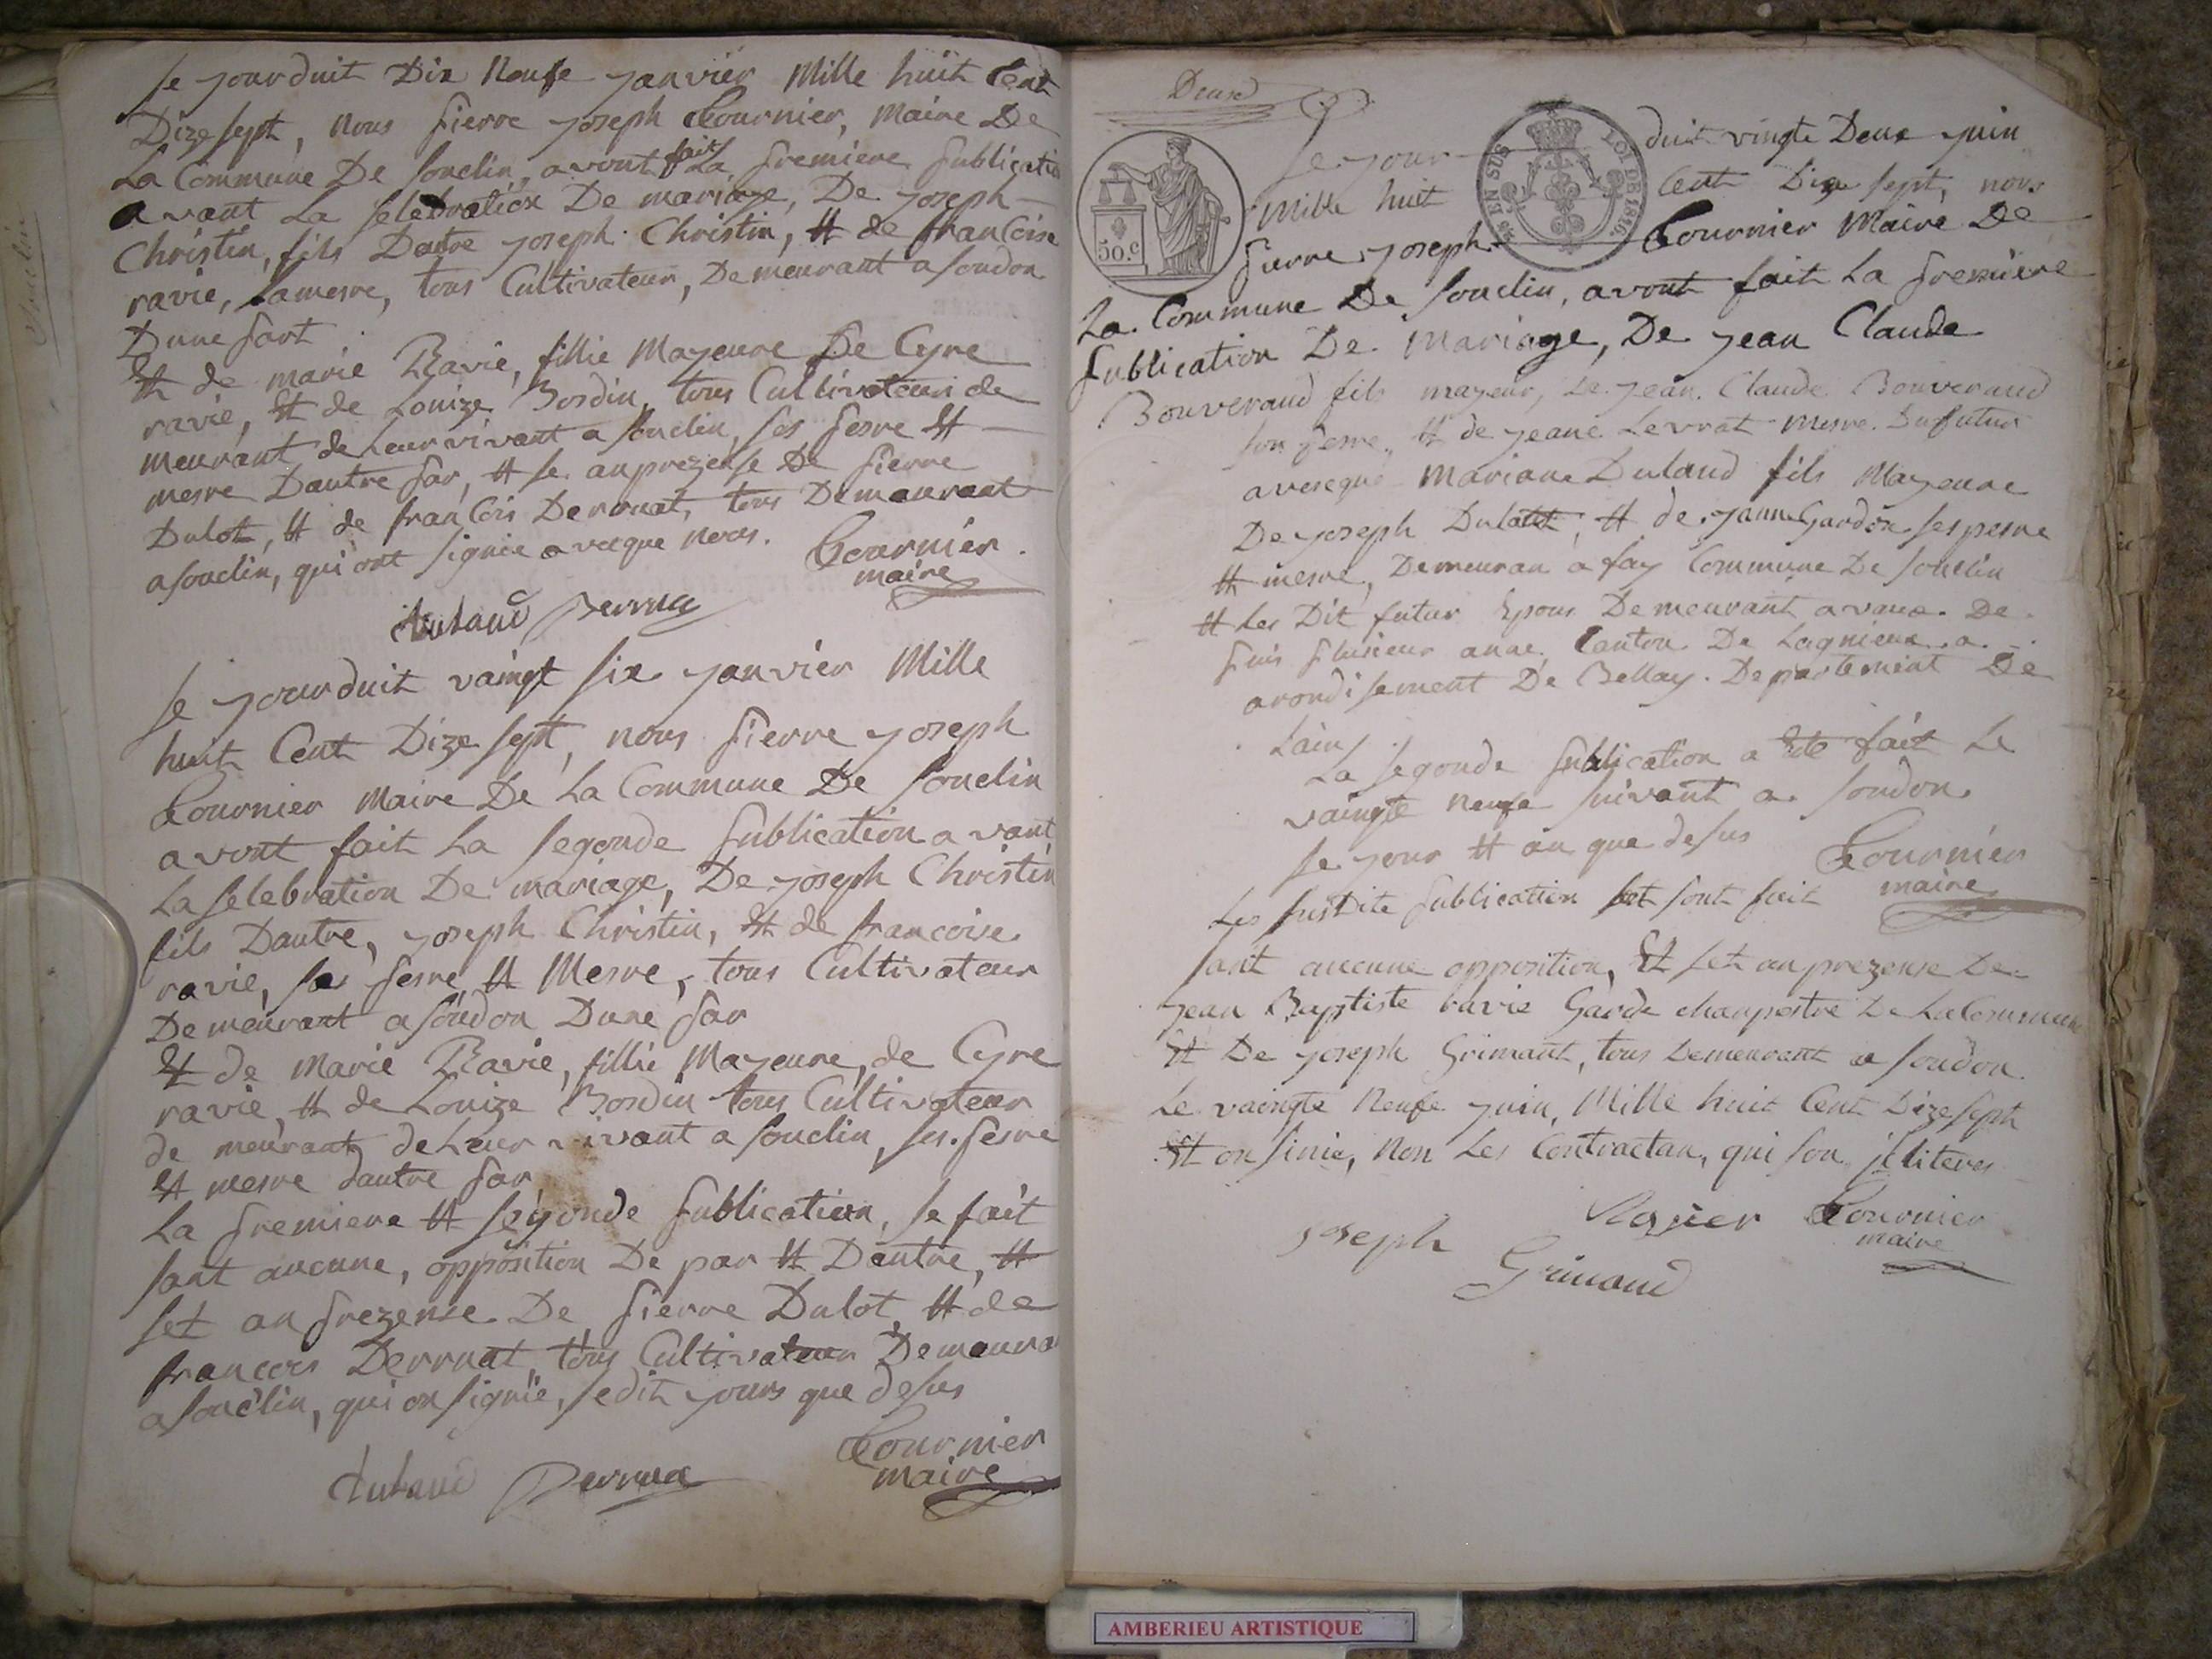 Se jourduit Dix Neufe janvier Mille huit Cent
Dize sept, nous pierre joseph Tournier, maire De
La Commune De Souclin, avont fait La premiere publicatio
avant La selebration De mariage, De joseph
Christin, fils Dautre joseph Christin, et de francoise
ravie, Lamesre, tous Cultivateur, Demeurant a soudon
Dune part
Et de marie Ravie, fillie Mayeure De Cyre
ravie, Et de Louize Bordin, tous Cultivateur de
meurant de Leur vivant a souclin, ses pesre Et
mesre Dautre par, et se anprezense De pierre
Dulot, et de francois Derruat, tous Demeurant
a souclin, qui ont signie avecque nous. Tournier
maire
Dulaud Derruat
Se jourduit vaingt six janvier Mille
huit Cent Dize sept, nous pierre joseph
Tournier Maire De La Commune De Souclin
avont fait La segonde publication avant
La selebration De mariage, De joseph Christin
fils Dautre, joseph Christin, Et de francoise
ravie, ses pesre et Mesre, tous Cultivateur
Demeurant a soudon Dune par
Et de Marie Ravie, fillie Mayeure, de Cyre
ravie, et de Louize Bordin tous Cultivateur
de meurant de Leur vivant a souclin, ses pesre
Et mesre dautre par
La premiere et segonde publication, se fait
sant aucune, opposition De par et Dautre, et
set an prezense De pierre Dulot, et de
francois Derruat, tous Cultivateur Demeura
a souclin, qui on signie, se dit jours que desus
Tournier
maire
Dulaud Derruat
Deuse
50.C
EN SUS LOI DE 1816
Se jour duit vingte Deux juin
Mille huit Cent Dize sept, nous
pierre joseph Tournier Maire De
La Commune De Souclin, avont fait La premiere
publication De Mariage, De jean Claude
Bouveraud fils mayeur, de jean Claude Bouveraud
son pesre, et de jeane Levrat mesre Dufutur
avecque Mariane Dulaud fils Mayeure
De joseph Dulaut, et de janne Gardon ses pesre
et mesre, Demeuran a fay Commune De souclin
et Les Dit futur Epous Demeurant avaux De
puis plusieur anae, Canton De Lagnieux, a
arondisement De Bellay. Departement De
Lains
La segonde publication a Ete fait Le
vaingte neufe suivant a soudon
se jour et an que desus Tournier
maire
Les susdite publication set sont fait
sant aucune opposition, Et set anprezense De
jean Baptiste ravie Garde chanpestre De La Commune
Et De joseph Grimaut, tous Demeurant a soudon
Le vaingte Neufe juin, Mille huit Cent Dize sept
Et on sinie, non Les Contractan, qui son iliteres
joseph Tournier
maire
Grimaud
AMBERIEU ARTISTIQUE